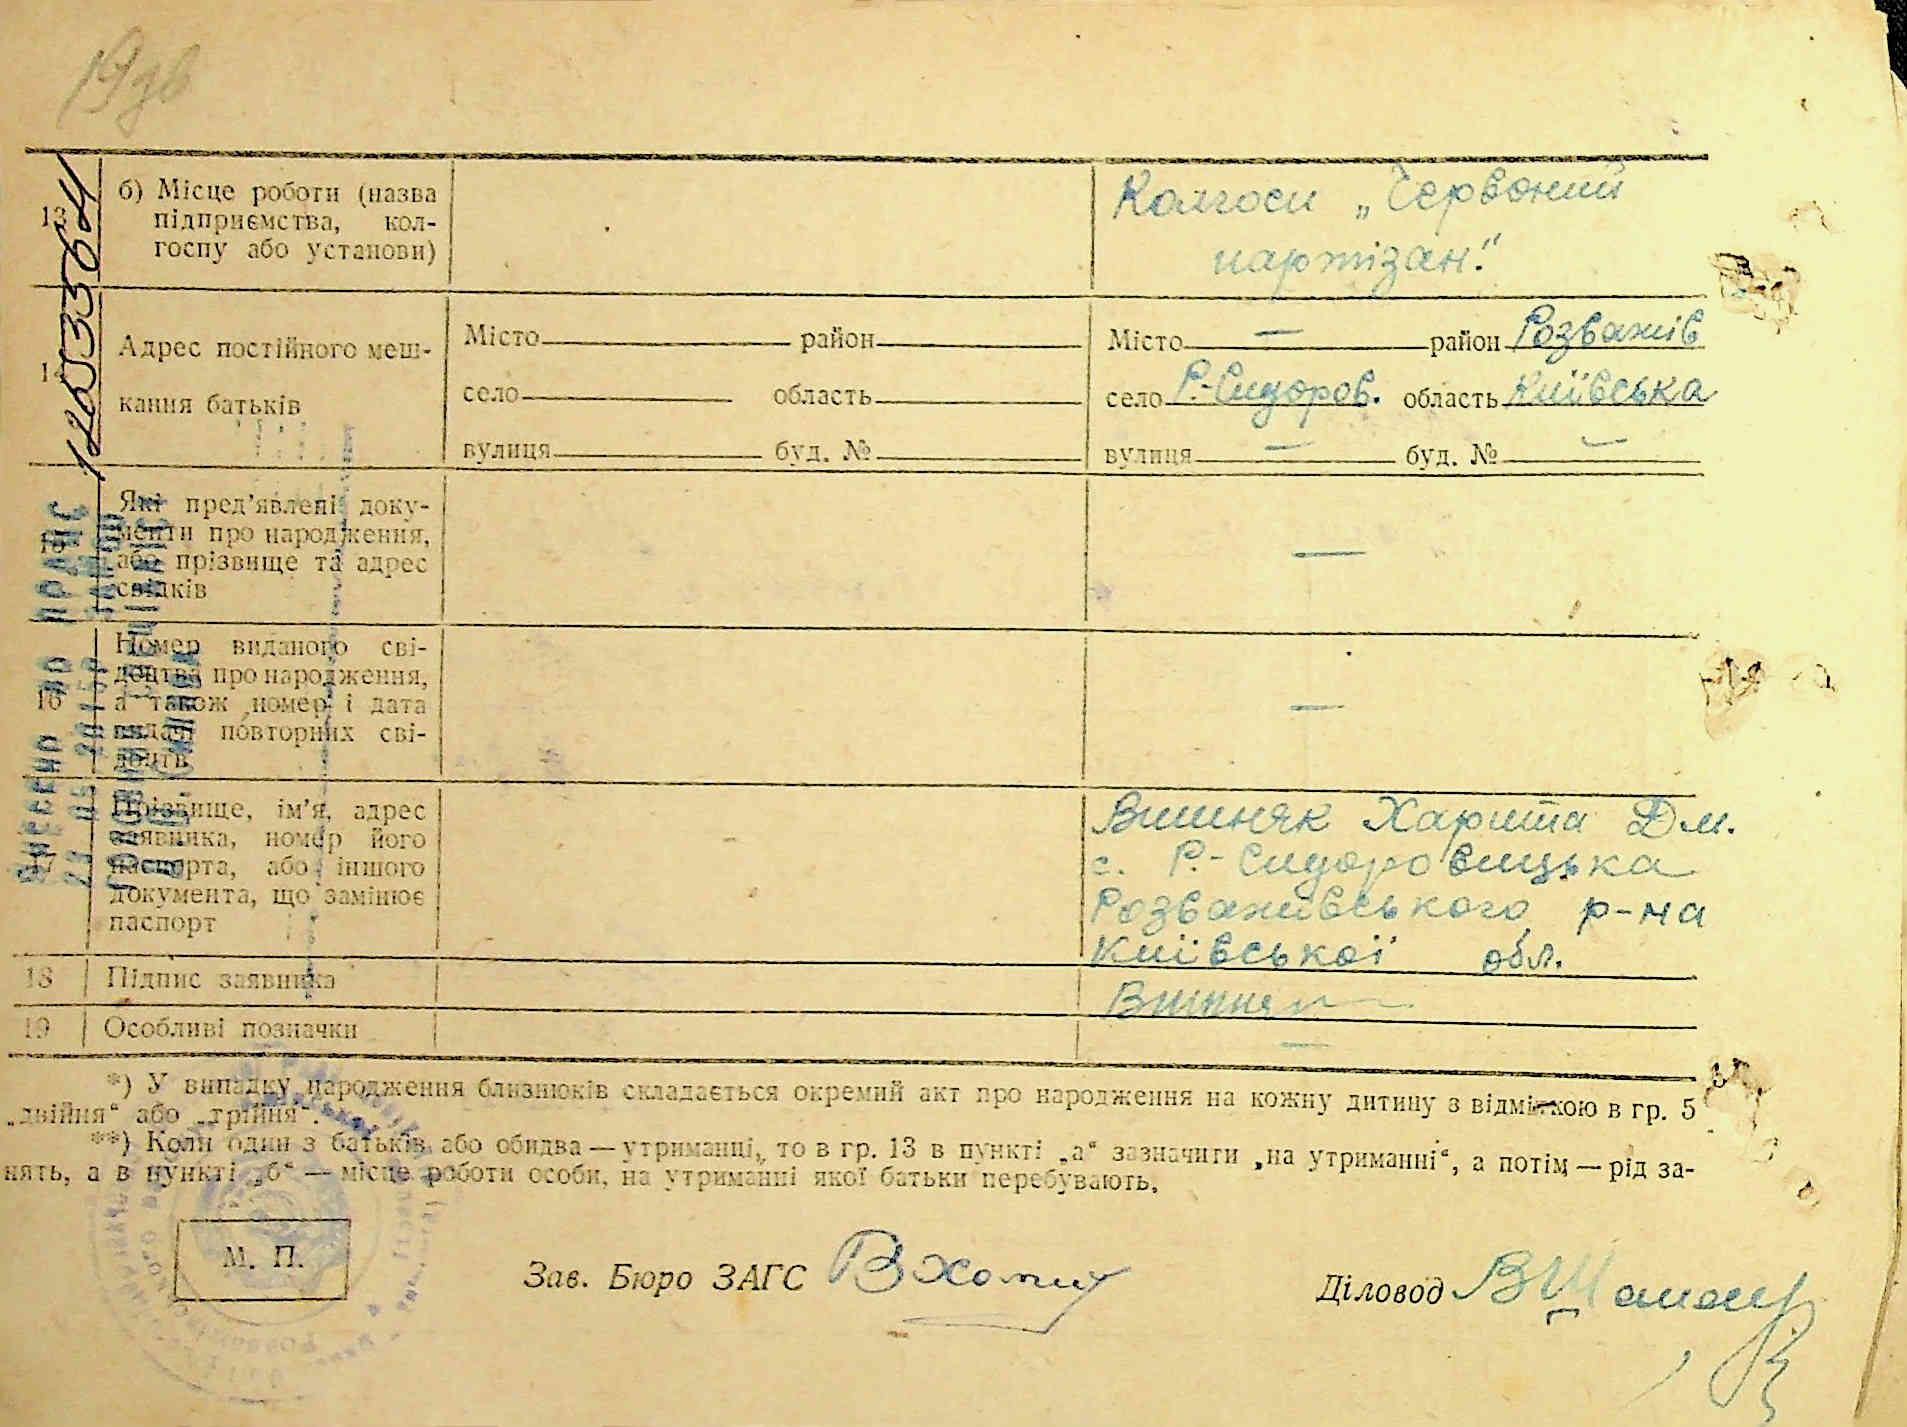 19зв
13
б) Місце роботи (назва
підприємства, кол-
госпу або установи)
Колгосп „Червоний
партізан."
Адрес постійного меш-
кання батьків
Місто район
село область
вулиця буд. №
Місто — район Розважів
село Р.-Сидоров. область Київська
вулиця — буд. № —
Які пред'явлені доку-
менти про народження,
або прізвище та адрес
свідків
—
16
Номер виданого сві-
доцтва про народження,
а також номер і дата
видачі повторних сві-
доцтв
—
17
Прізвище, ім'я, адрес
заявника, номер його
паспорта, або іншого
документа, що замінює
паспорт
Вишняк Харита Дм.
с. Р.-Сидоровицька
Розважівського р-на
Київської обл.
18 Підпис заявника
Вишняк
19 Особливі позначки
—
*) У випадку народження близнюків складається окремий акт про народження на кожну дитину з відміткою в гр. 5
„двійня“ або „трійня“.
**) Коли один з батьків або обидва — утриманці, то в гр. 13 в пункті „а“ зазначити „на утриманні“, а потім — рід за-
нять, а в пункті „б“ — місце роботи особи, на утриманні якої батьки перебувають.
М. П.
Зав. Бюро ЗАГС
Діловод